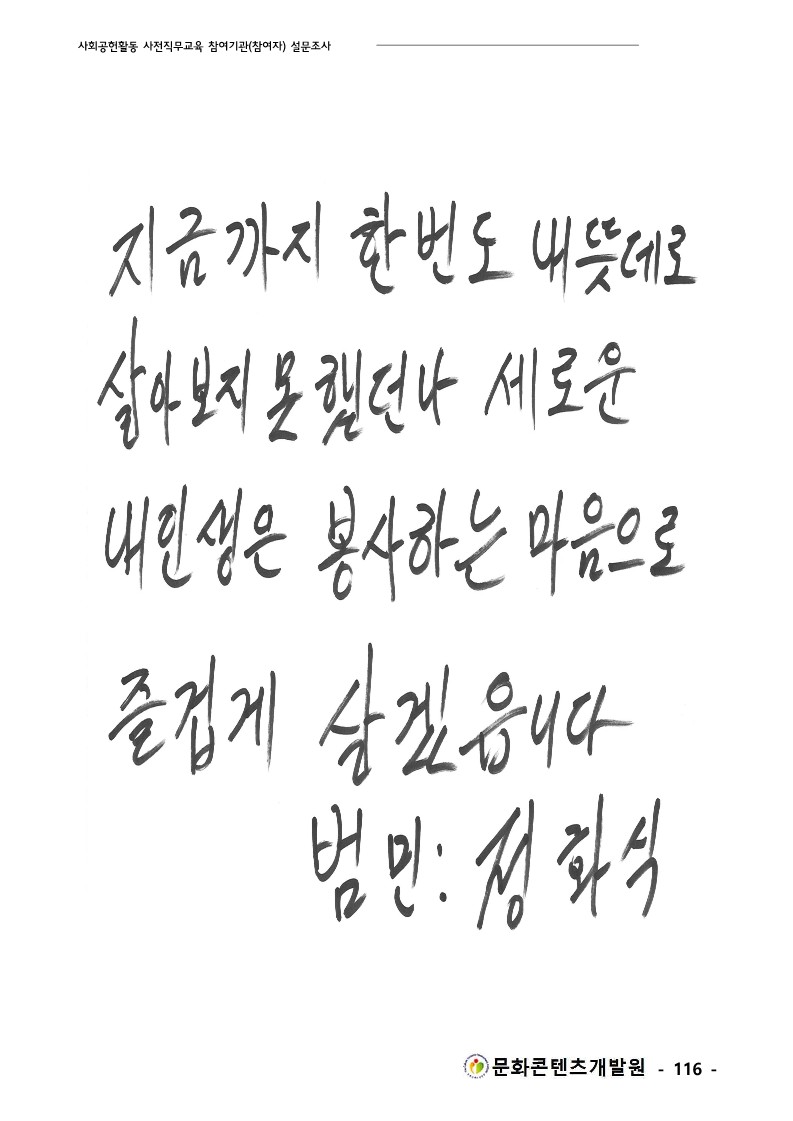 사회공헌활동 사전직무교육 참여기관(참여자) 설문조사
지금까지 한번도 내뜻데로
살아보지못했던나 세로운
내인생은 봉사하는 마음으로
즐겁게 살겠읍니다
범민: 정화식
문화콘텐츠개발원 - 116 -